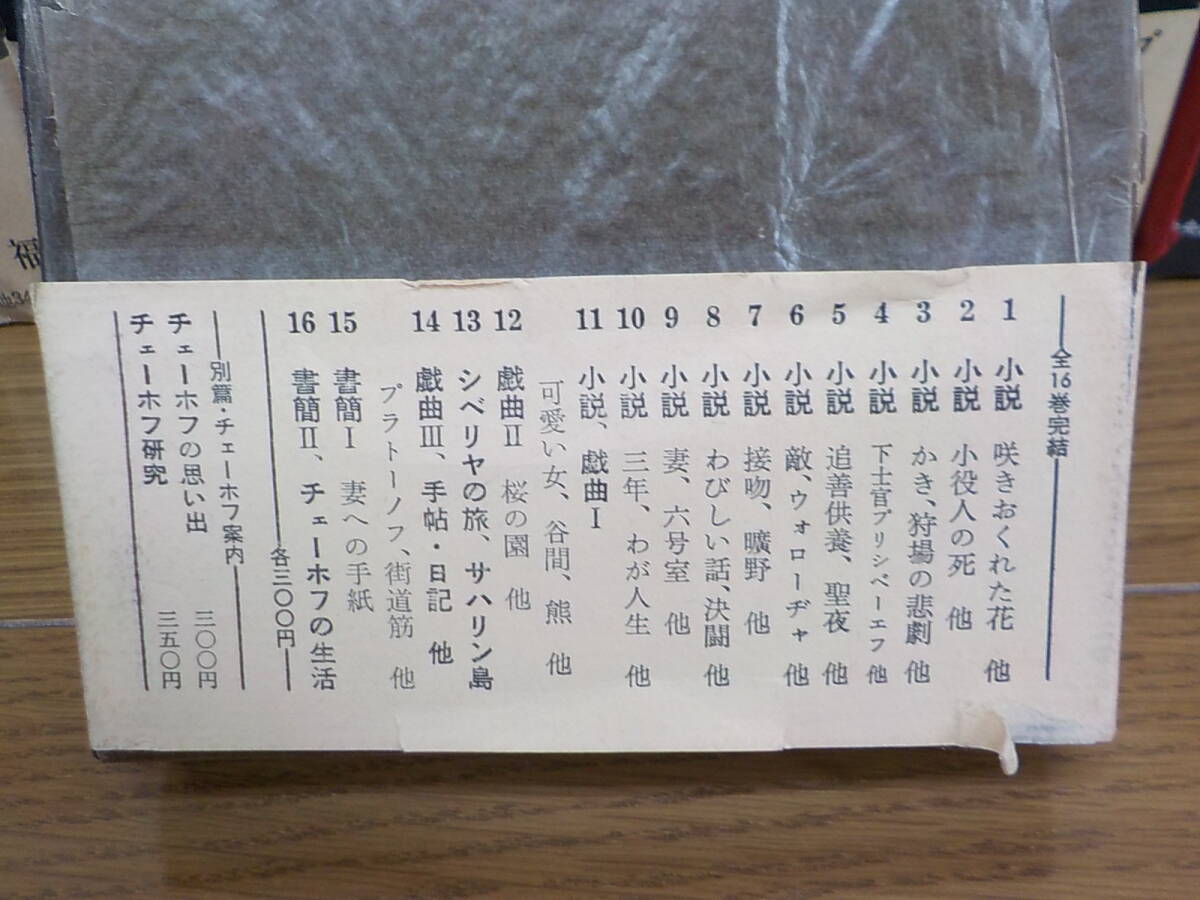 全16巻完結
1 小説 咲きおくれた花 他
2 小説 小役人の死 他
3 小説 かき、狩場の悲劇 他
4 小説 下士官プリシベーエフ 他
5 小説 追善供養、聖夜 他
6 小説 敵、ウォローヂャ 他
7 小説 接吻、曠野 他
8 小説 わびしい話、決闘 他
9 小説 妻、六号室 他
10 小説 三年、わが人生 他
11 小説、戯曲Ⅰ
可愛い女、谷間、熊 他
12 戯曲Ⅱ 桜の園 他
13 シベリヤの旅、サハリン島
14 戯曲Ⅲ、手帖・日記 他
プラトーノフ、街道筋 他
15 書簡Ⅰ 妻への手紙
16 書簡Ⅱ、チェーホフの生活
各三〇〇円
別篇・チェーホフ案内
チェーホフの思い出 三〇〇円
チェーホフ研究 三五〇円
福